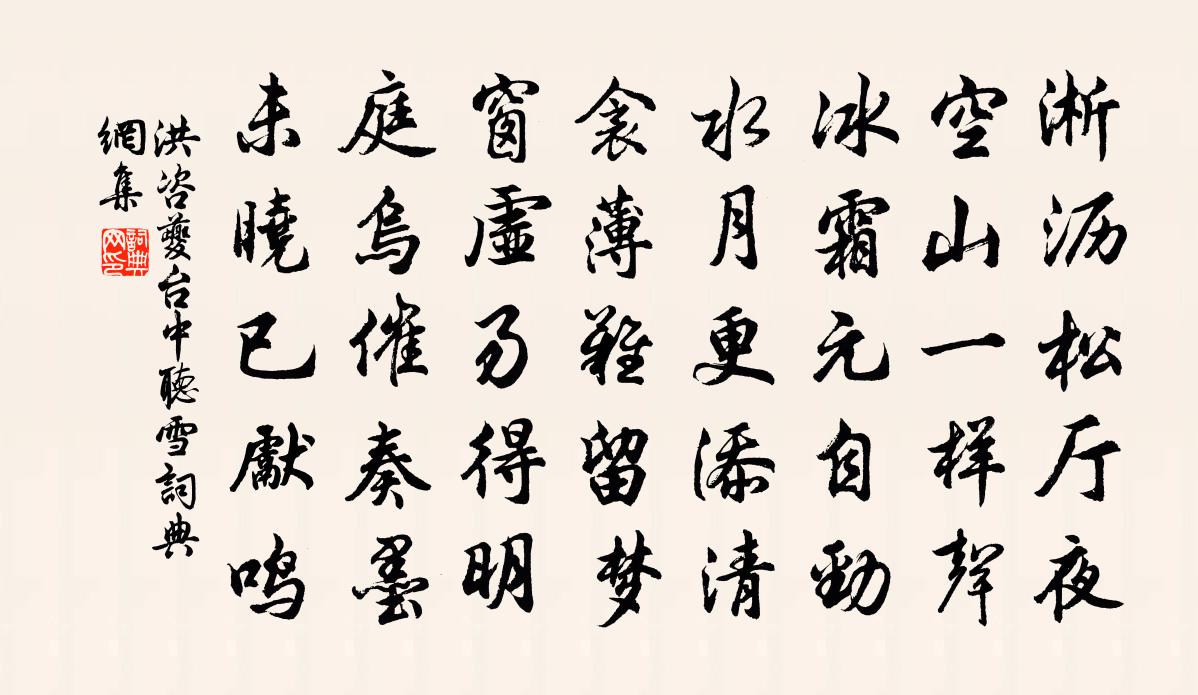 淅沥松厅夜
空山一样聲
冰霜元自勁
水月更添清
衾薄難留梦
窗虚易得明
庭烏催奏墨
未曉已獻鸣
洪咨夔台中聽雪詞典
網集
詞典
网印